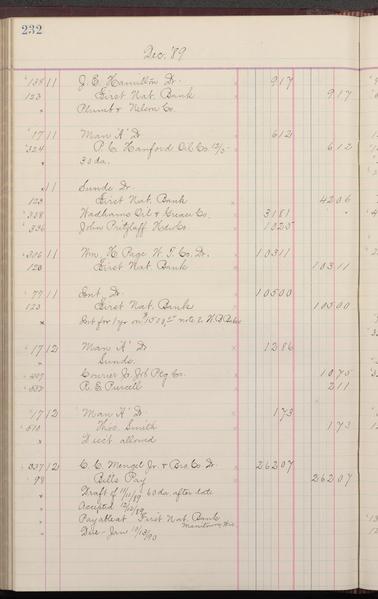 232
Dec. '89
138 11 J. E. Hamilton Dr. 917
123 First Nat. Bank 917
Plumb & Nelson Co.
17 11 Man 'A' Dr 612
324 P. C. Hanford Oil Co. 12/5- 612
30 da.
11 Sunds Dr
123 First Nat. Bank 4206
328 Wadhams Oil & Grease Co. 3181
336 John Pritzlaff Hdw Co 1025
316 11 Wm. H Page W. T. Co. Dr. 10311
120 First Nat Bank 10311
77 11 Int. Dr. 10500
123 First Nat. Bank 10500
Int for 1 yr on $1500 note
17 12 Man 'A' Dr 1286
Sunds.
Courier Jo. Job Ptg Co. 1075
R. E. Purcell 211
17 12 Man 'A' Dr 173
510 Thos. Smith 173
Disct allowed
337 12 C. C. Mengel Jr. & Bro Co. Dr. 26207
98 Bills Pay 26207
Draft of 11/11/89 60 da. after date
Accepted 12/12/89
Pay at First Nat. Bank
Manitowoc, Wis
Due - Jan 10/13/90